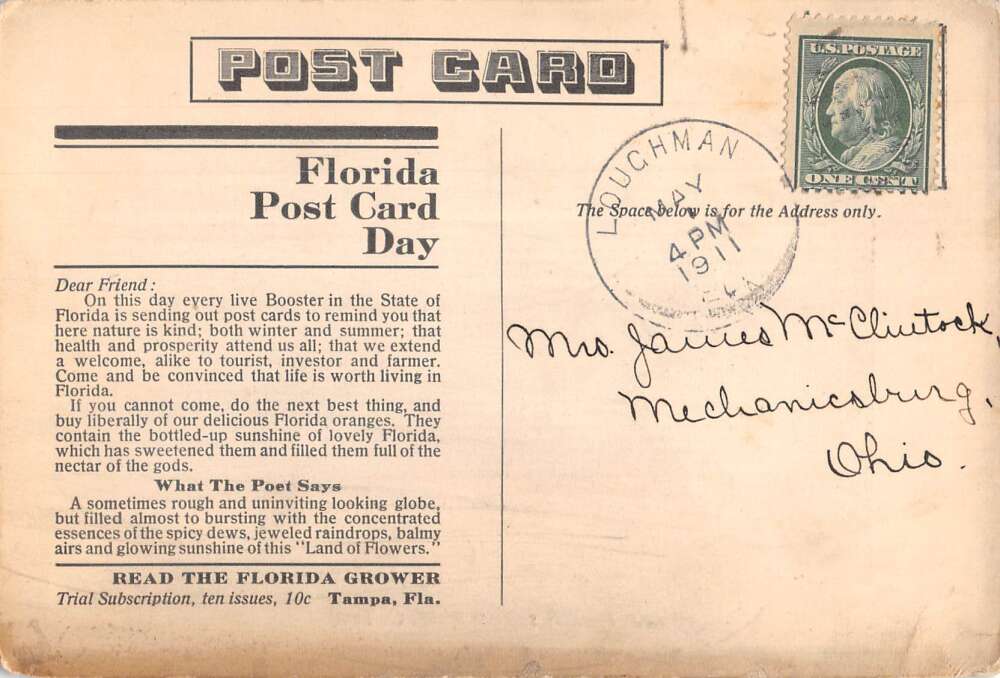 POST CARD
U.S. POSTAGE
ONE CENT
LOUGHMAN
MAY
4 PM
1911
FLA.
Florida
Post Card
Day
The Space below is for the Address only.
Dear Friend:
On this day every live Booster in the State of
Florida is sending out post cards to remind you that
here nature is kind; both winter and summer; that
health and prosperity attend us all; that we extend
a welcome, alike to tourist, investor and farmer.
Come and be convinced that life is worth living in
Florida.
If you cannot come, do the next best thing, and
buy liberally of our delicious Florida oranges. They
contain the bottled-up sunshine of lovely Florida,
which has sweetened them and filled them full of the
nectar of the gods.
What The Poet Says
A sometimes rough and uninviting looking globe,
but filled almost to bursting with the concentrated
essences of the spicy dews, jeweled raindrops, balmy
airs and glowing sunshine of this "Land of Flowers."
READ THE FLORIDA GROWER
Trial Subscription, ten issues, 10c Tampa, Fla.
Mrs. James McClintock,
Mechanicsburg,
Ohio.